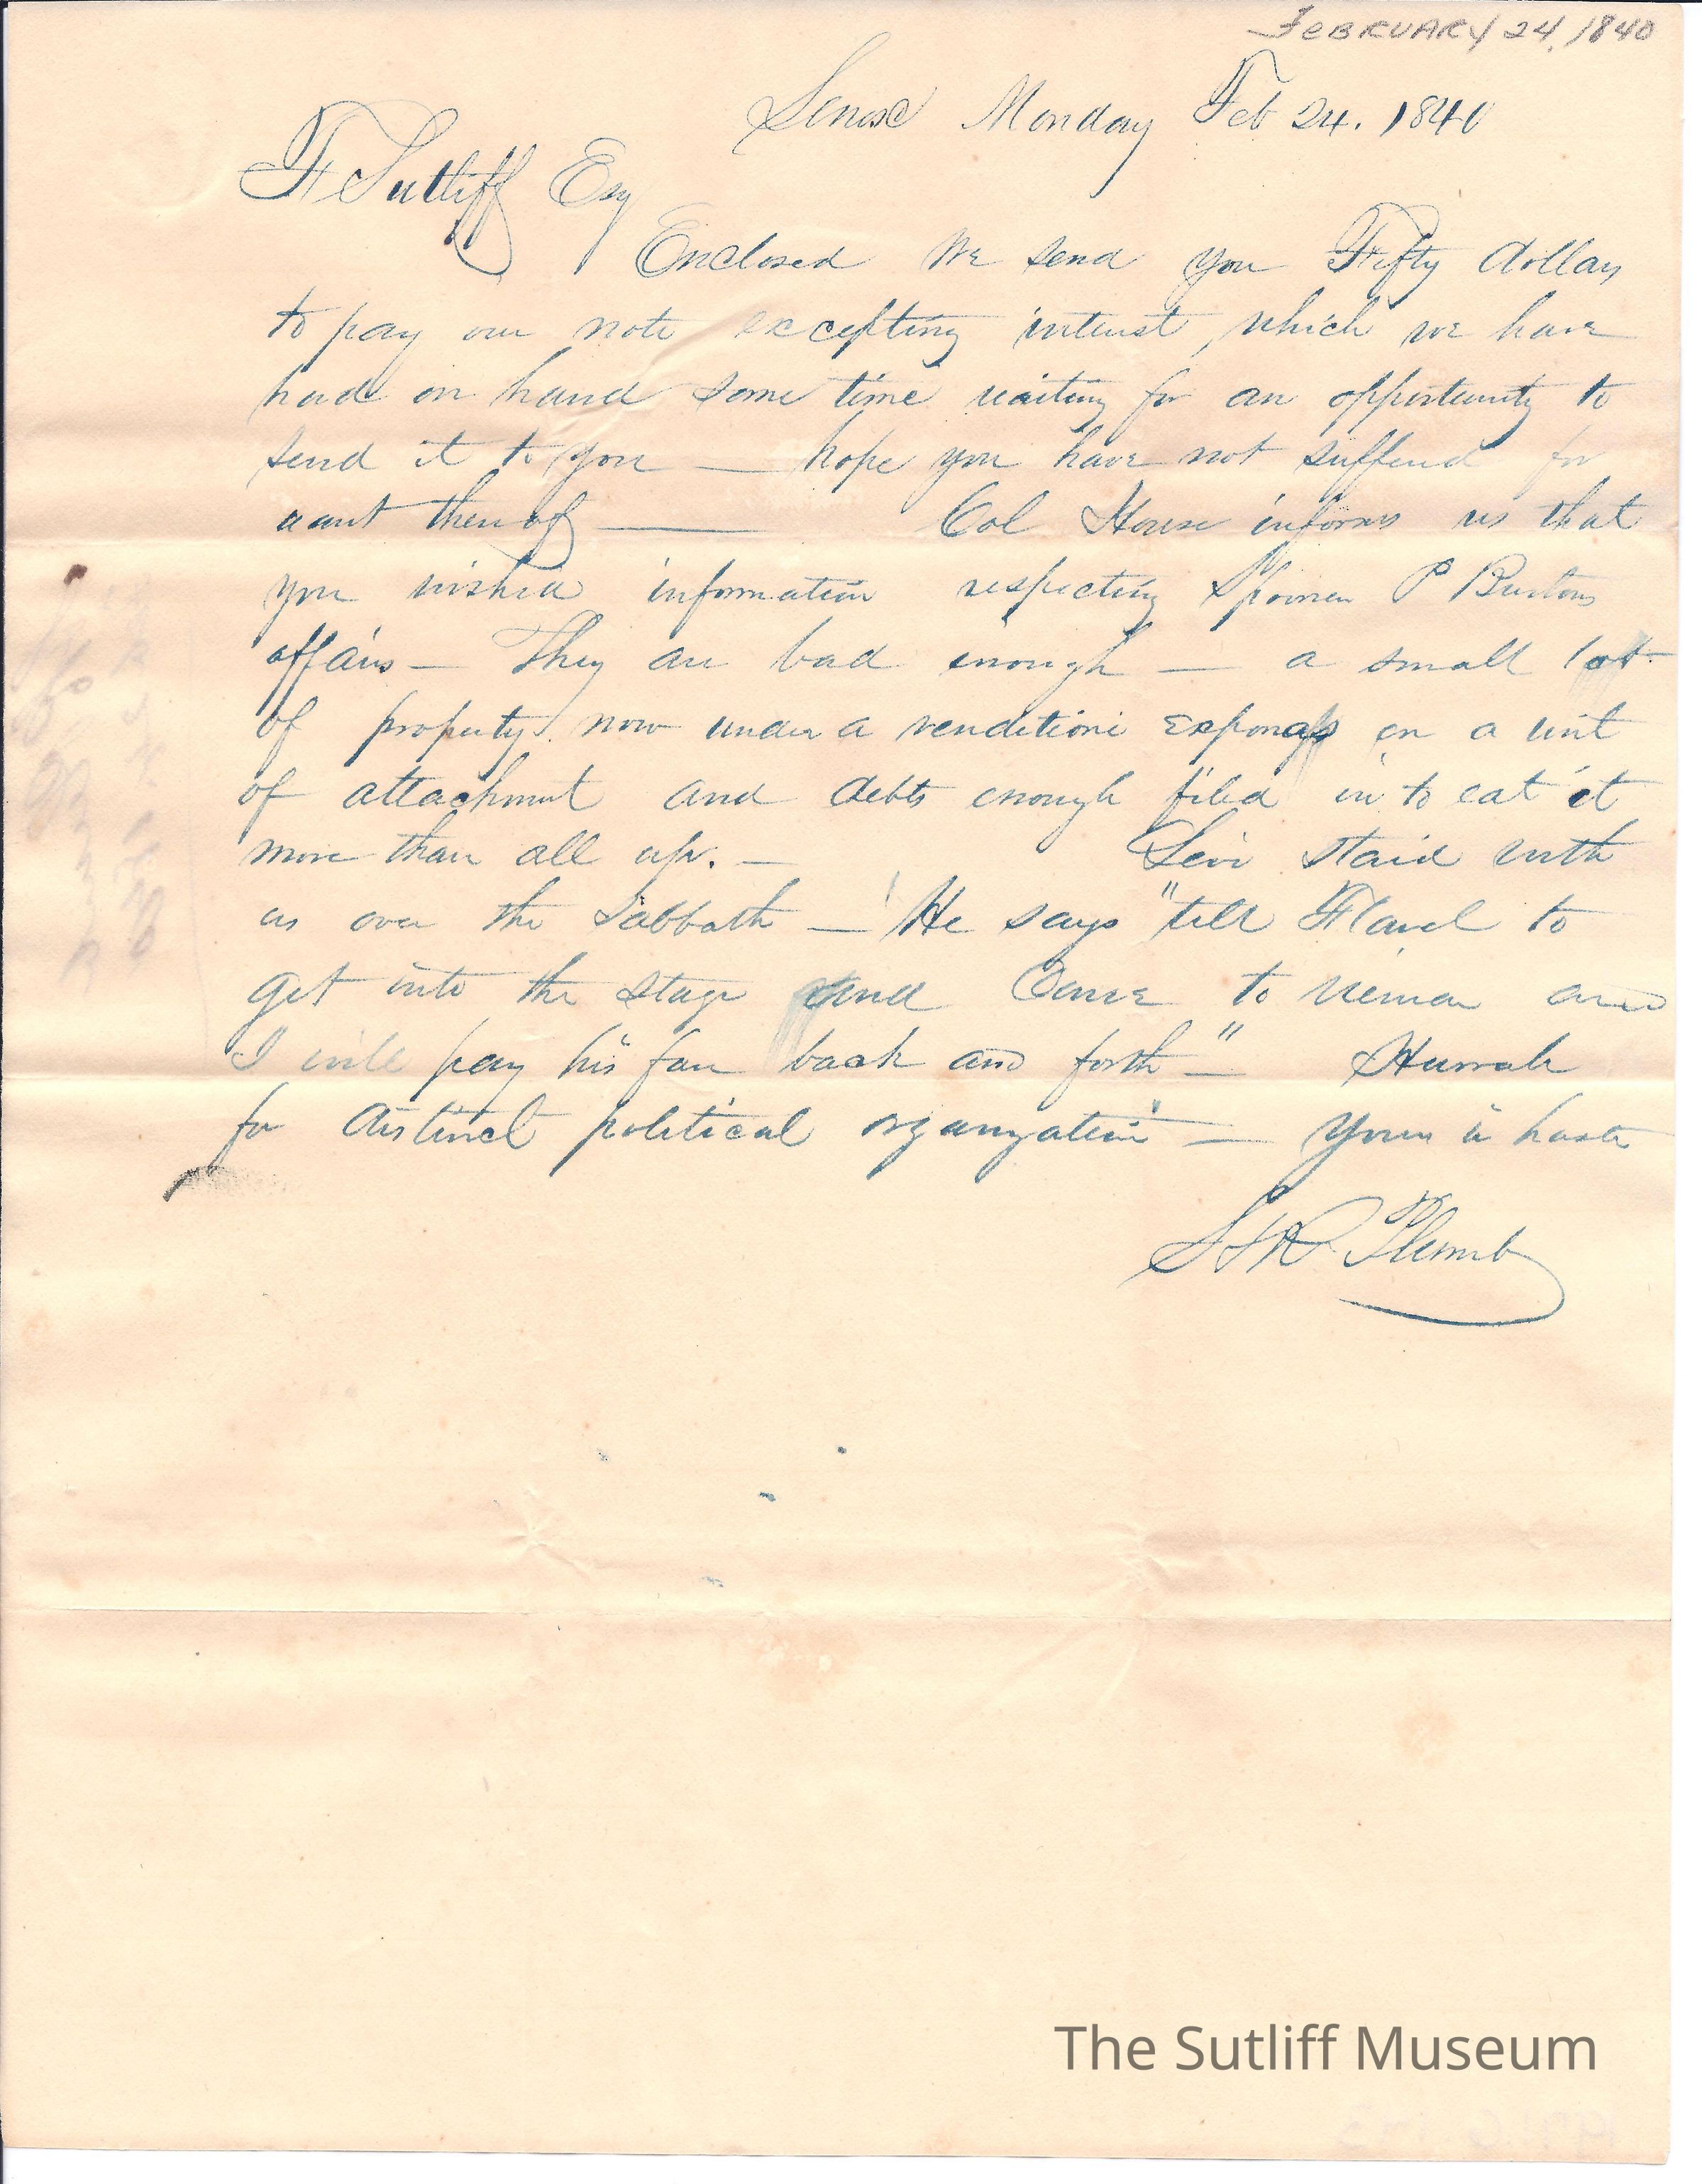 FEBRUARY 24, 1840
Lenox Monday Feb 24. 1840
F Sutliff Esq
Enclosed we send you Fifty dollars
to pay our note excepting interest, which we have
had on hand some time waiting for an opportunity to
send it to you — hope you have not suffered for
want thereof — Col House informs us that
you wished information respecting P Burtons
affairs — They are bad enough — a small lot
of property now under a venditioni exponas on a writ
of attachment and debts enough filed in to eat it
more than all up. — Levi staid with
us over the Sabbath — He says "tell Flavel to
get into the stage and come to Vienna and
I will pay his fare back and forth —" Hurrah
for distinct political organization — Yours in haste
S & R Plumb
The Sutliff Museum